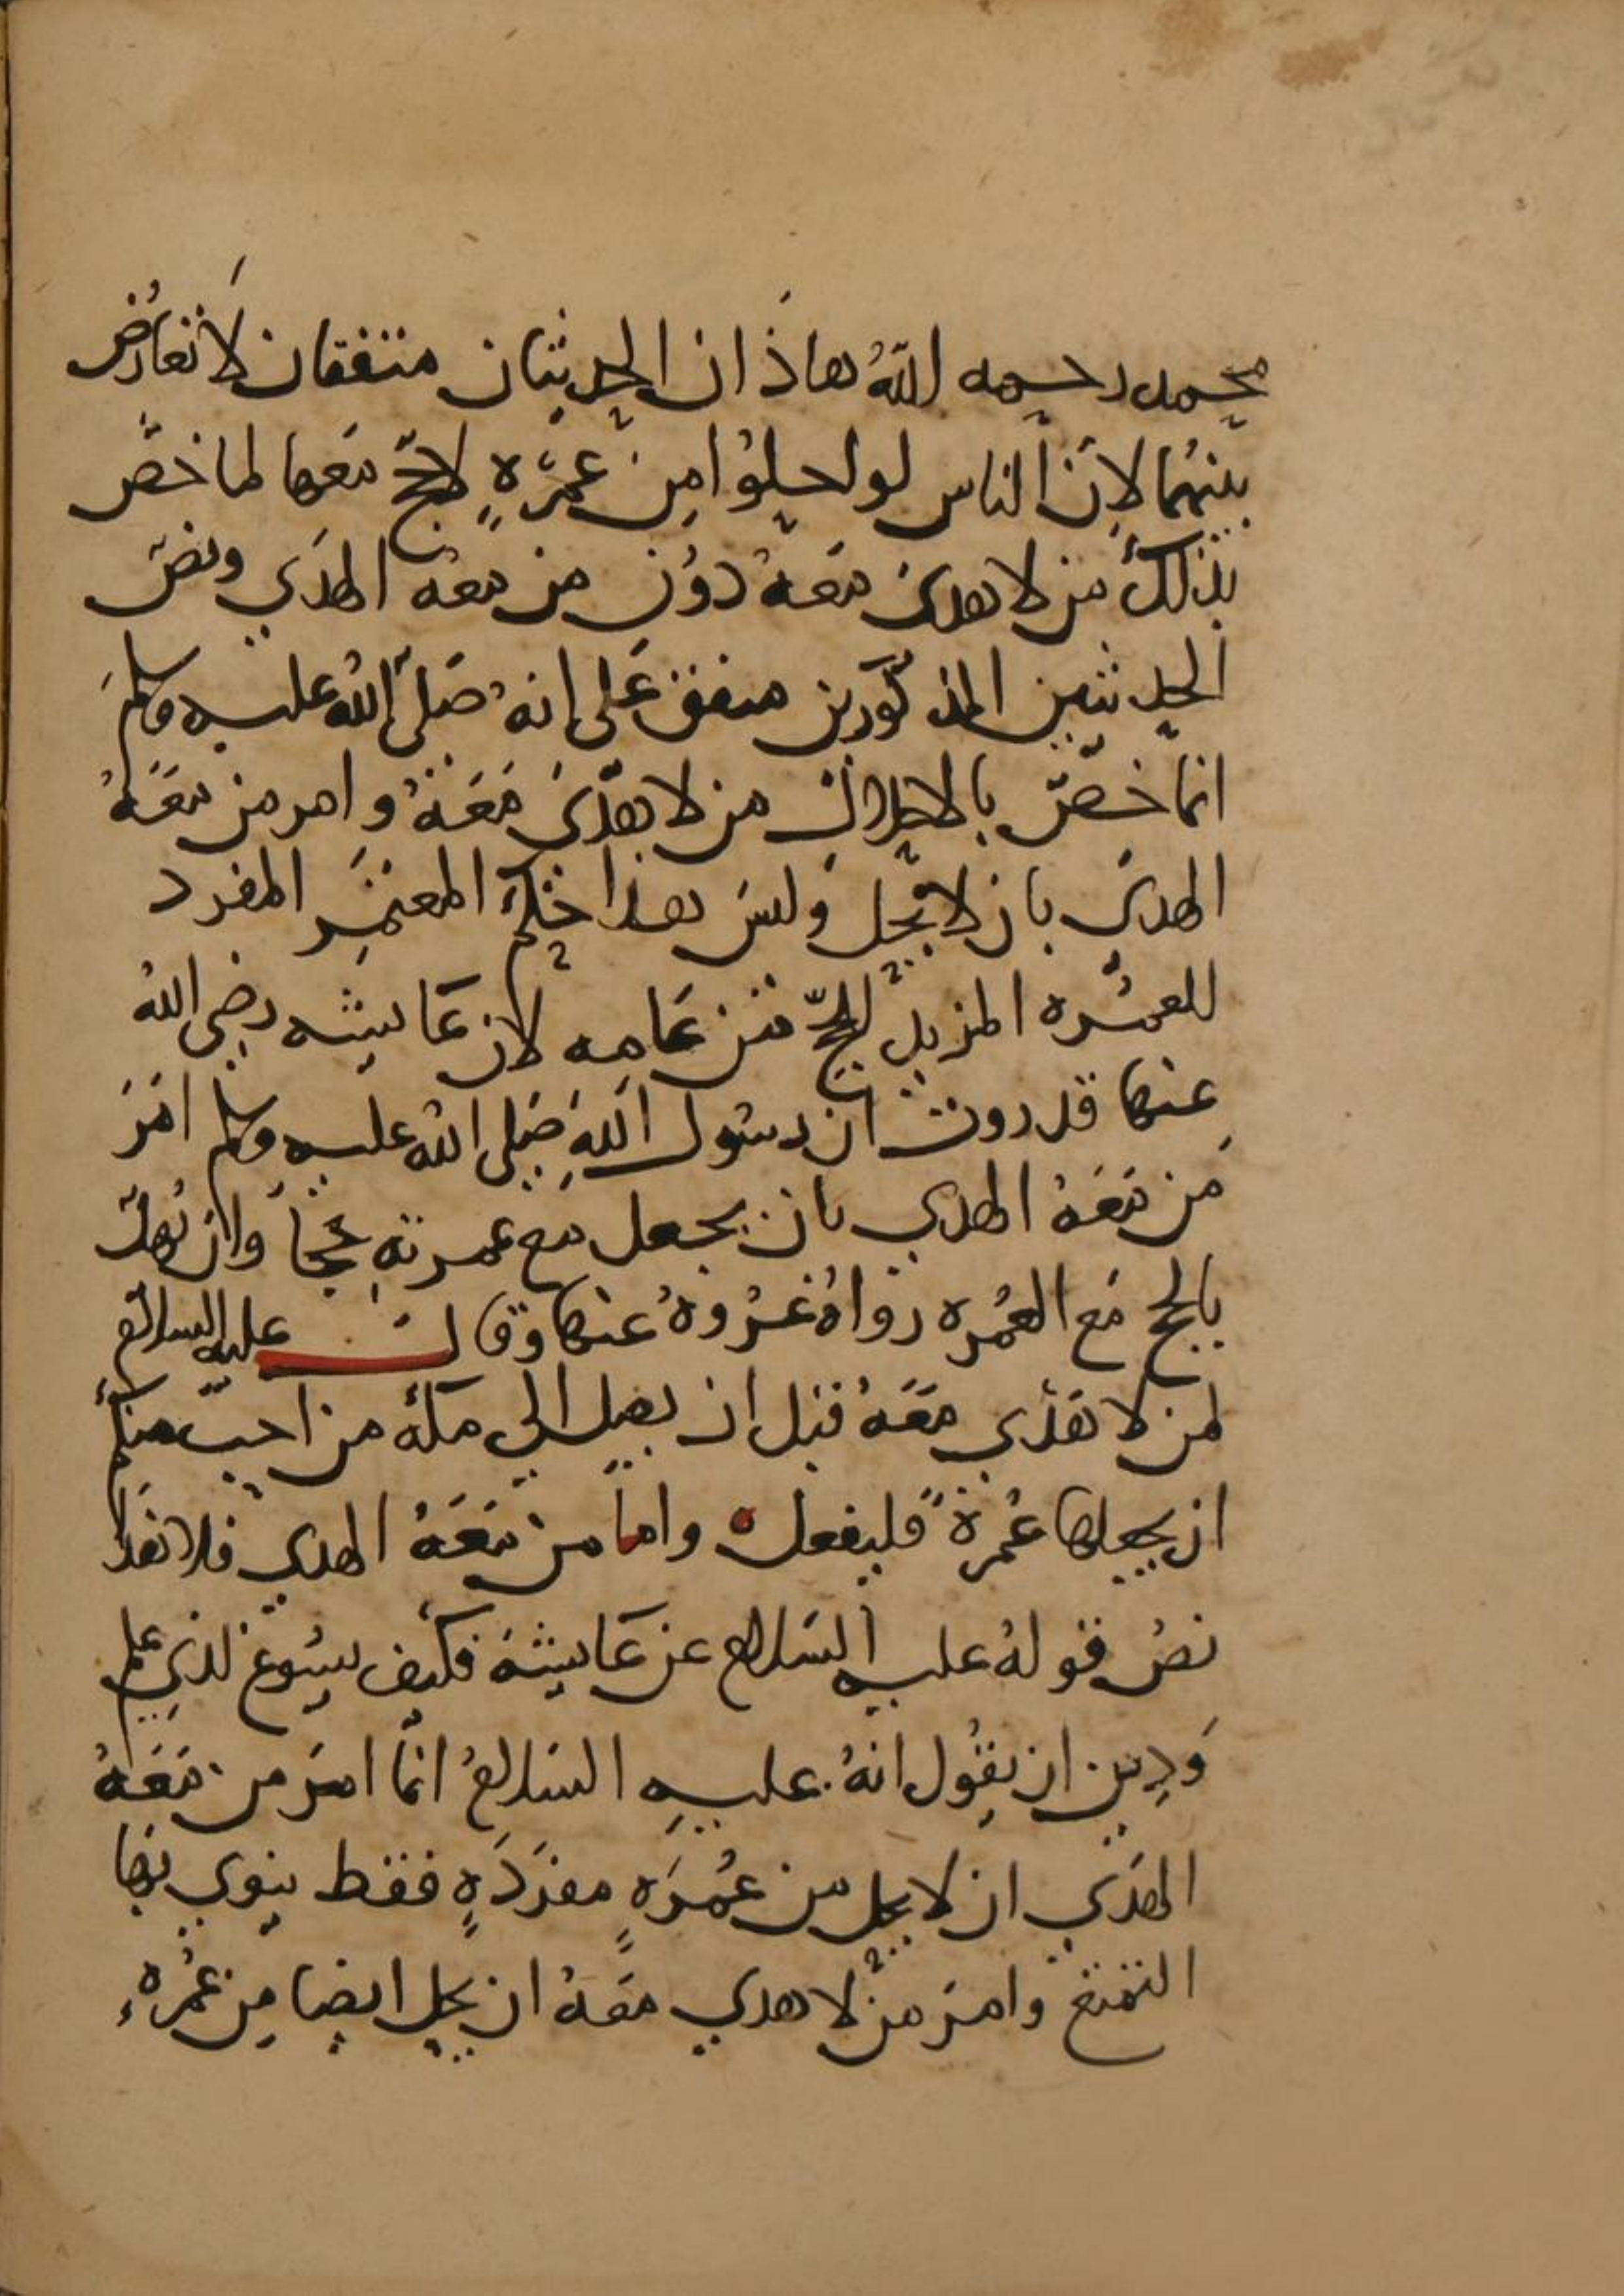 محمد رحمه اللهُ هاذان الحديثان متفقان لا تعارُض
بينهُما لاِنَّ الناس لو احلوُا مِن عمرَةٍ لا حجّ معَها لما خصَّ
بذلك من لا هدىَ معَهُ دوُن من معَهُ الهدَي ونصّ
الحديثين المذكورين متفق عَلى انهُ صَلى اللهُ عليه وسلم
انما خصّ بالاحلال من لا هدىَ مَعَهُ وامر من معَهُ
الهدىَ بان لا يحل وليسَ هذا حُكم المعتمِر المفرد
للعمُره المزيد للحجّ من عَامِه لان عَايشه رضي اللهُ
عِنها قد روت ان رسَول اللهِ صَلى اللهُ عليه وسلم امَرَ
مَن معَهُ الهدي بان يجعل مع عمرتهِ حجاً وان يُهلّ
بالحج مَع العُمره رواهُ عُروهُ عنها وقال عليه السلام
لمن لا هدْي معَهُ قبل ان يصل الي مكه من احبّ منكم
ان يجعلها عُمرةً فليفعل واما من معَهُ الهدي فلا هَذا
نصُ قولهُ عليه السَلام عن عَايشة فكيف يسُوغ لذي علم
وَدِين ان يقُول انهُ عليهِ السَلامُ انمّا امَرَ من معَهُ
الهدَي ان لا يحل من عُمرَهٍ مفرَدَهٍ فقط ينوي بها
التمتع وامَرَ من لا هدي معَهُ ان يحل ايضا مِن عمُره